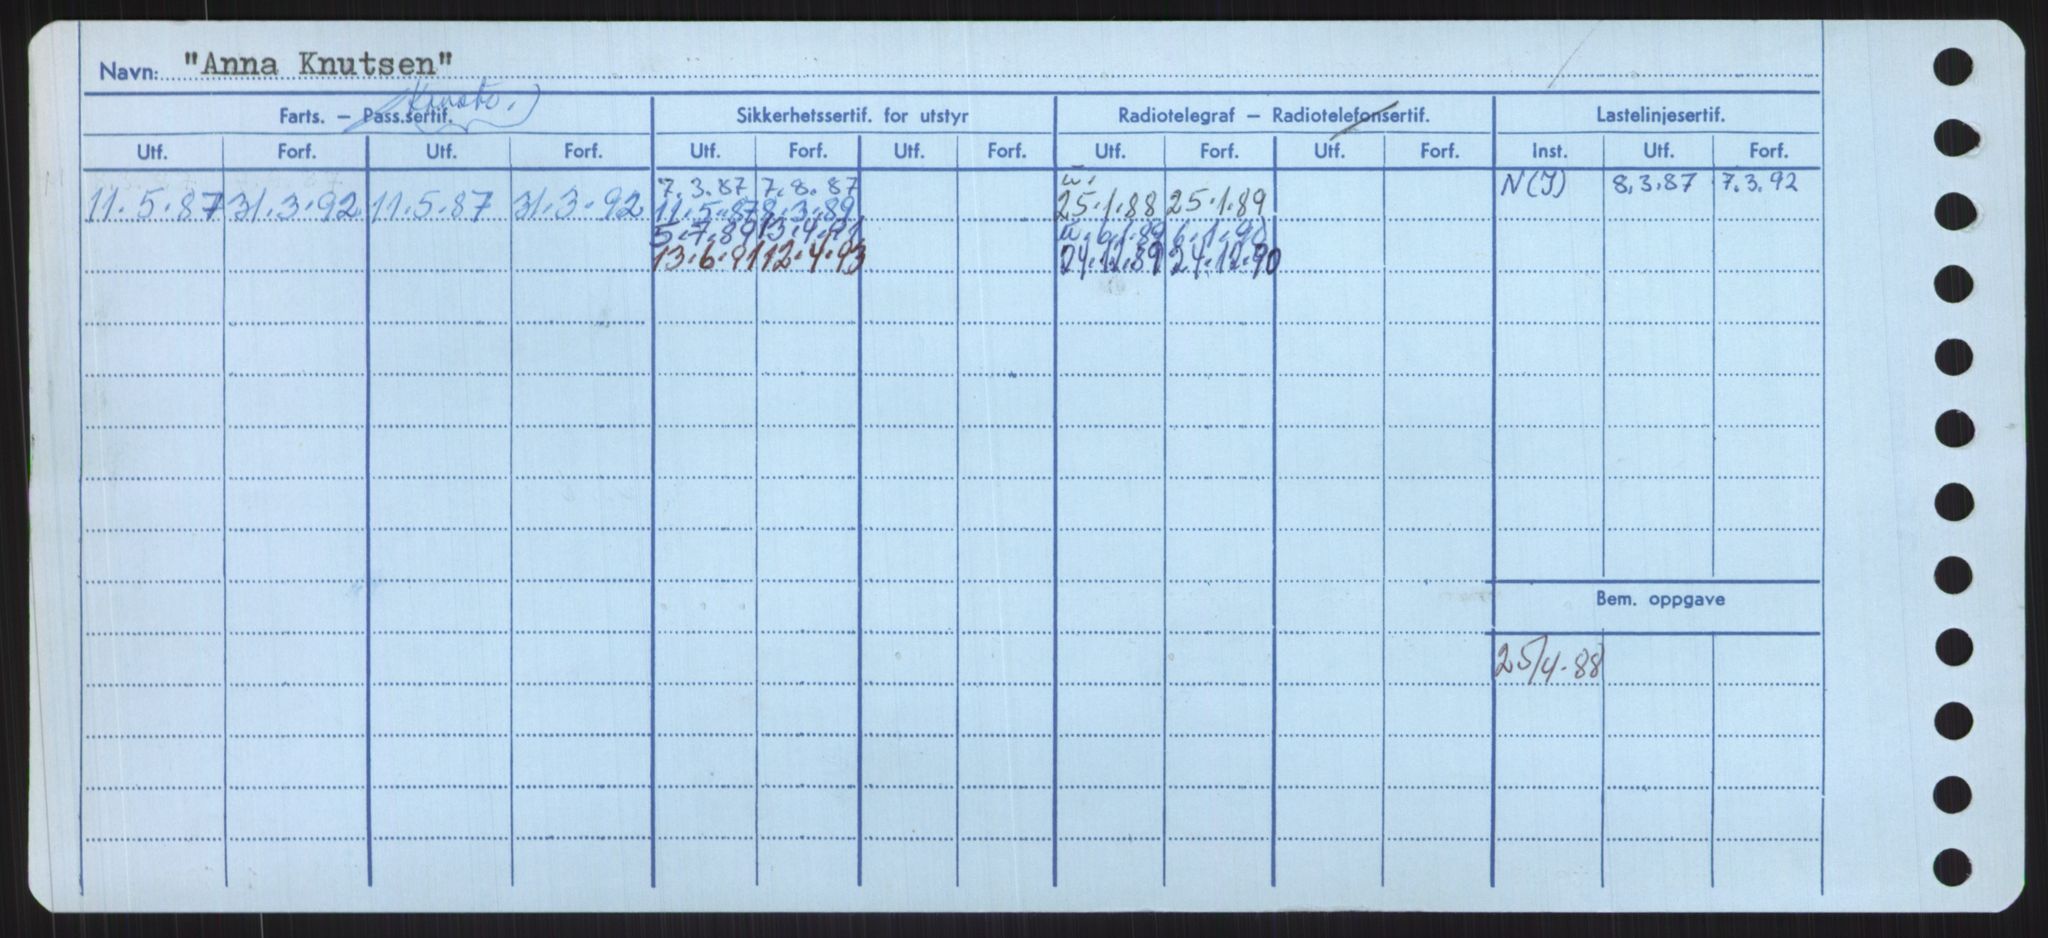 Navn: "Anna Knutsen"
Farts. — Pass.sertif. Sikkerhetssertif. for utstyr Radiotelegraf — Radiotelefonsertif. Lastelinjesertif.
Utf. Forf. Utf. Forf. Utf. Forf. Utf. Forf. Utf. Forf. Utf. Forf. Inst. Utf. Forf.
7.3.87 7.8.87 N(I) 8.3.87 7.3.92
11.5.87 31.3.92 11.5.87 31.3.92 11.5.87 8.3.89 25.1.88 25.1.89
5.7.89 13.4.91 6.1.89 6.1.90
13.6.91 12.4.93 24.12.89 24.12.90
Bem. oppgave
25/4.88